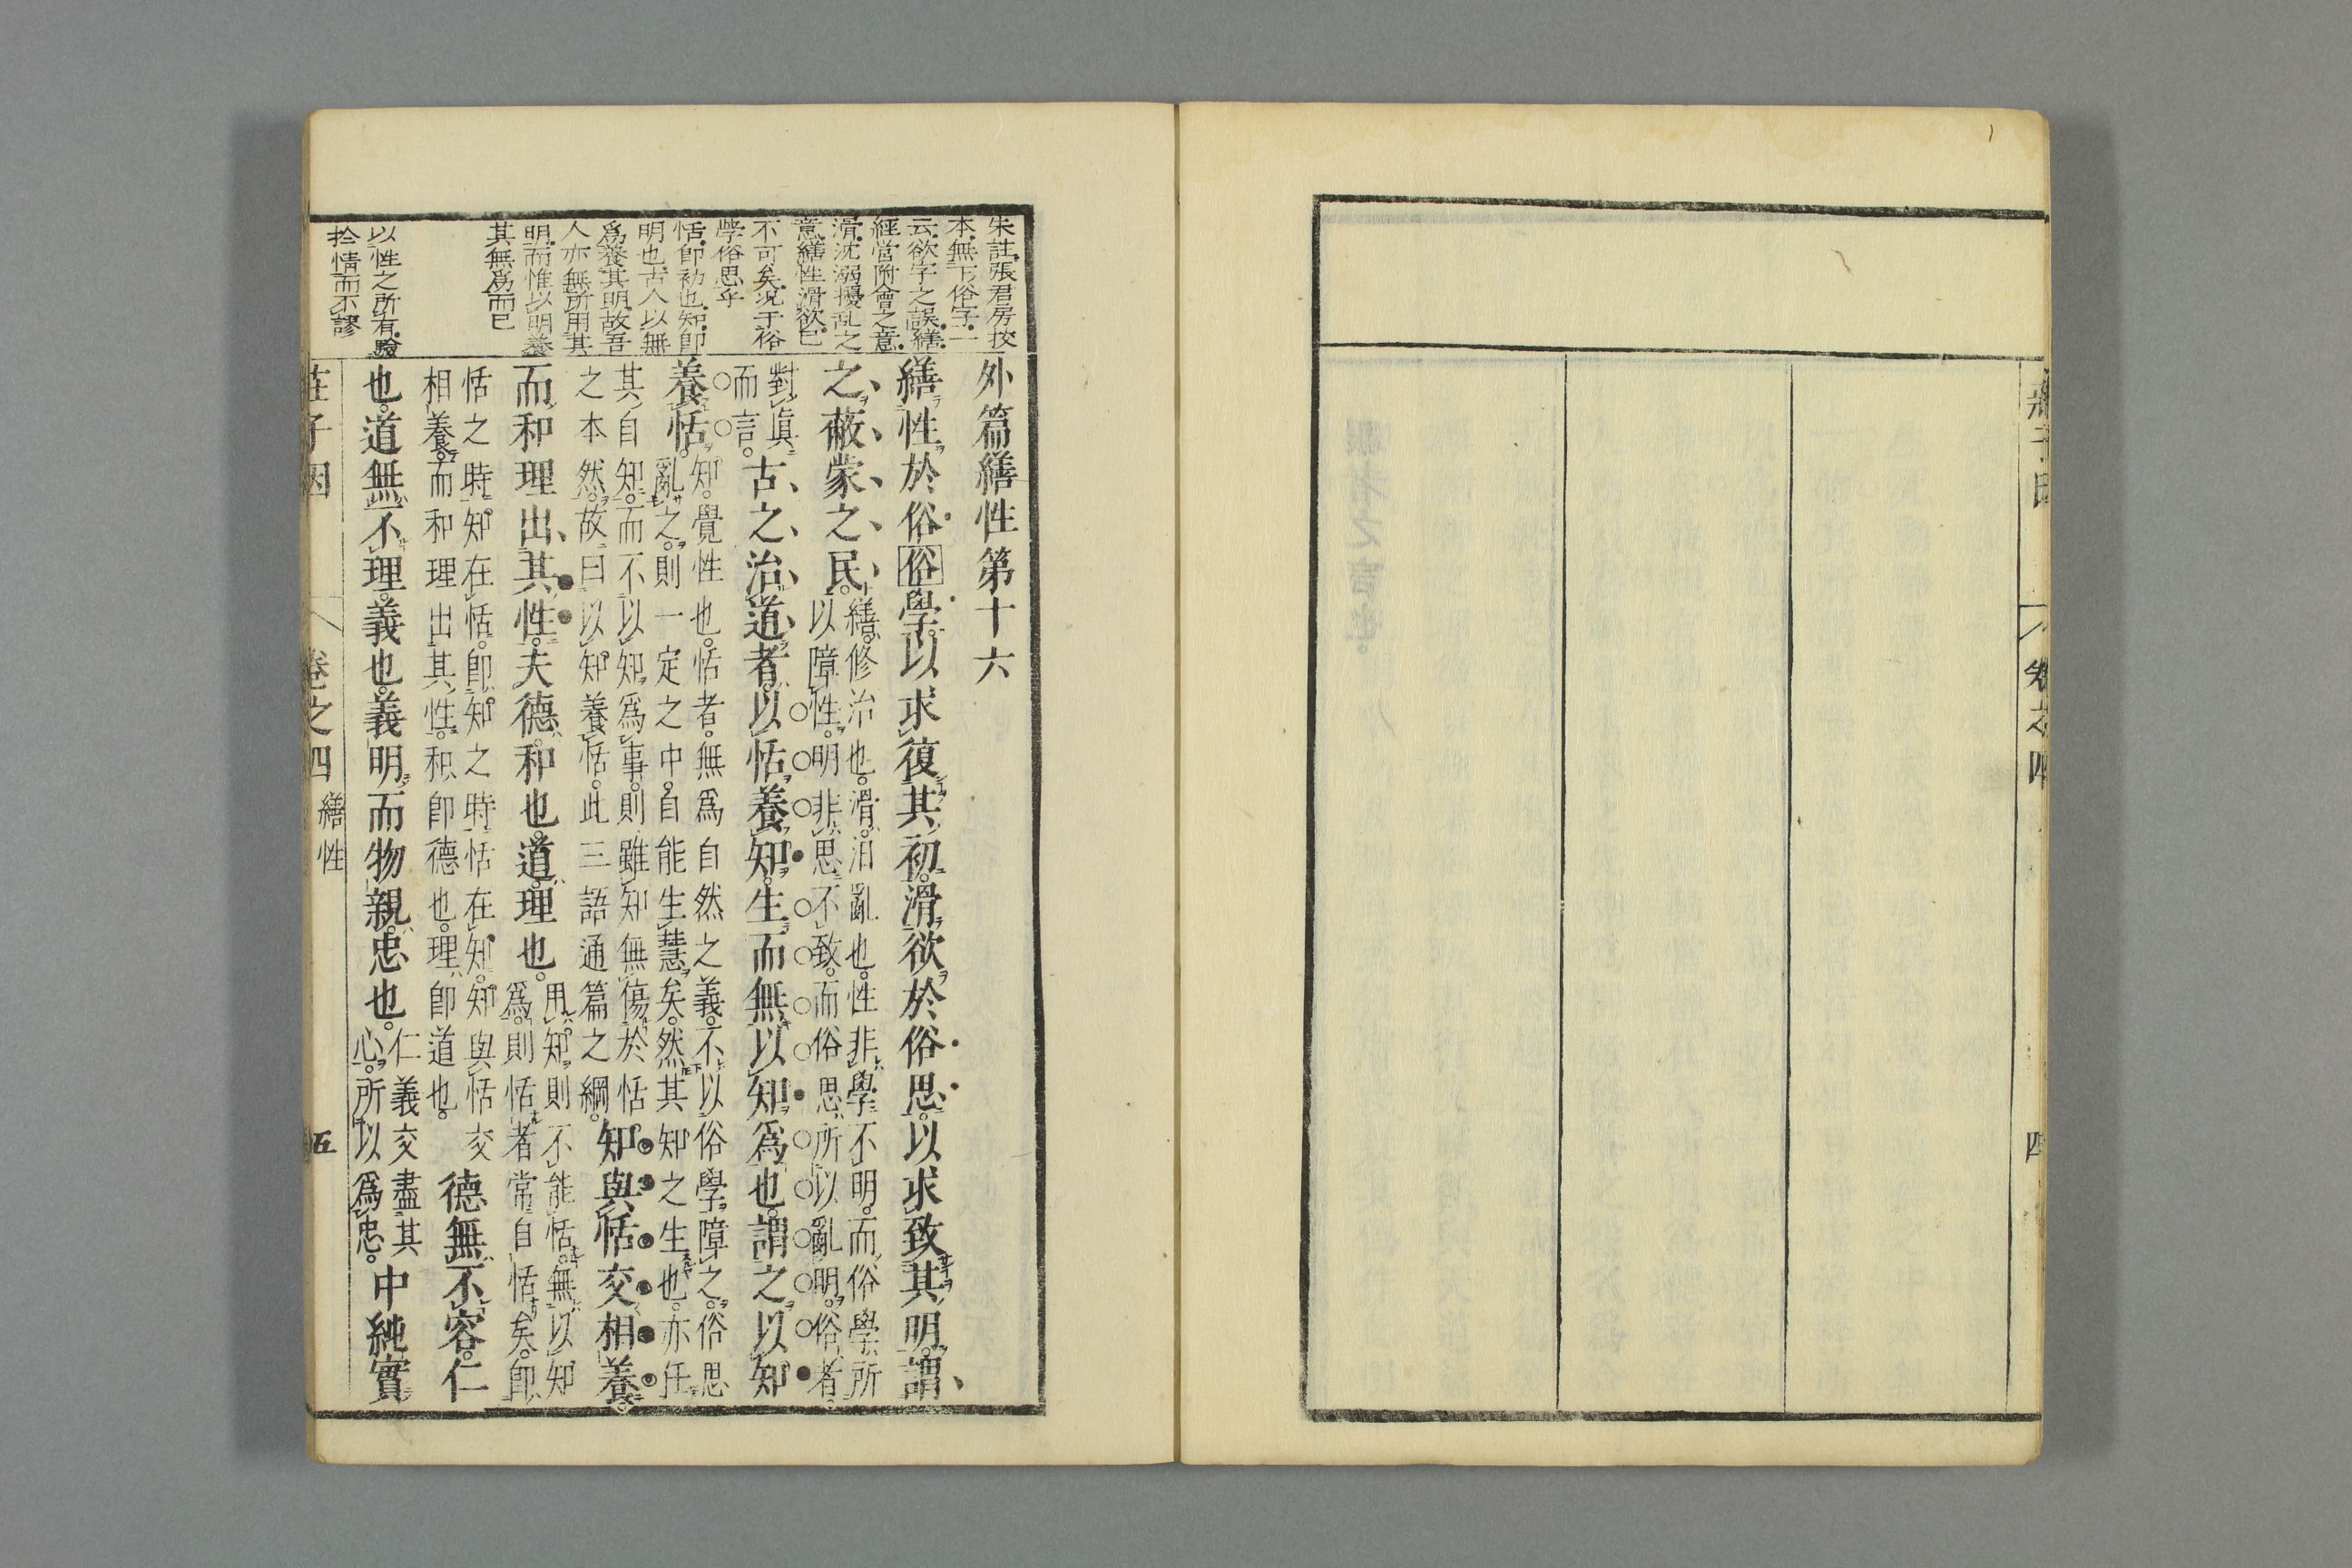 莊子因
卷之四
四
朱註張君房挍
本無下俗字一
云欲字之誤繕
經當附會之意
滑沈溺擾乱之
意繕性滑欲已
不可矣况于俗
學俗思乎
恬即初也知即
明也古人以無
爲養其明故吾
人亦無所用其
明而惟以明養
其無爲而已
以性之所有驗
於情而不謬
外篇繕性第十六
繕性於俗俗學以求復其初滑欲於俗思以求致其明謂
之蔽蒙之民
繕修治也滑汩亂也性非學不明而俗學所
以障性明非思不致而俗思所以亂明俗者
對眞
而言
古之治道者以恬養知生而無以知爲也謂之以知
養恬
知覺性也恬者無爲自然之義不以俗學障之俗思
亂之則一定之中自能生慧矣然其知之生也亦任
其自知而不以知爲事則雖知無傷於恬
之本然故曰以知養恬此三語通篇之綱
知與恬交相養
而和理出其性夫德和也道理也
用知則不能恬無以知
爲則恬者常自恬矣即
恬之時知在恬即知之時恬在知知與恬交
相養而和理出其性和即德也理即道也
德無不容仁
也道無不理義也義明而物親忠也
仁義交盡其
心所以爲忠
中純實
莊子因
卷之四
繕性
五